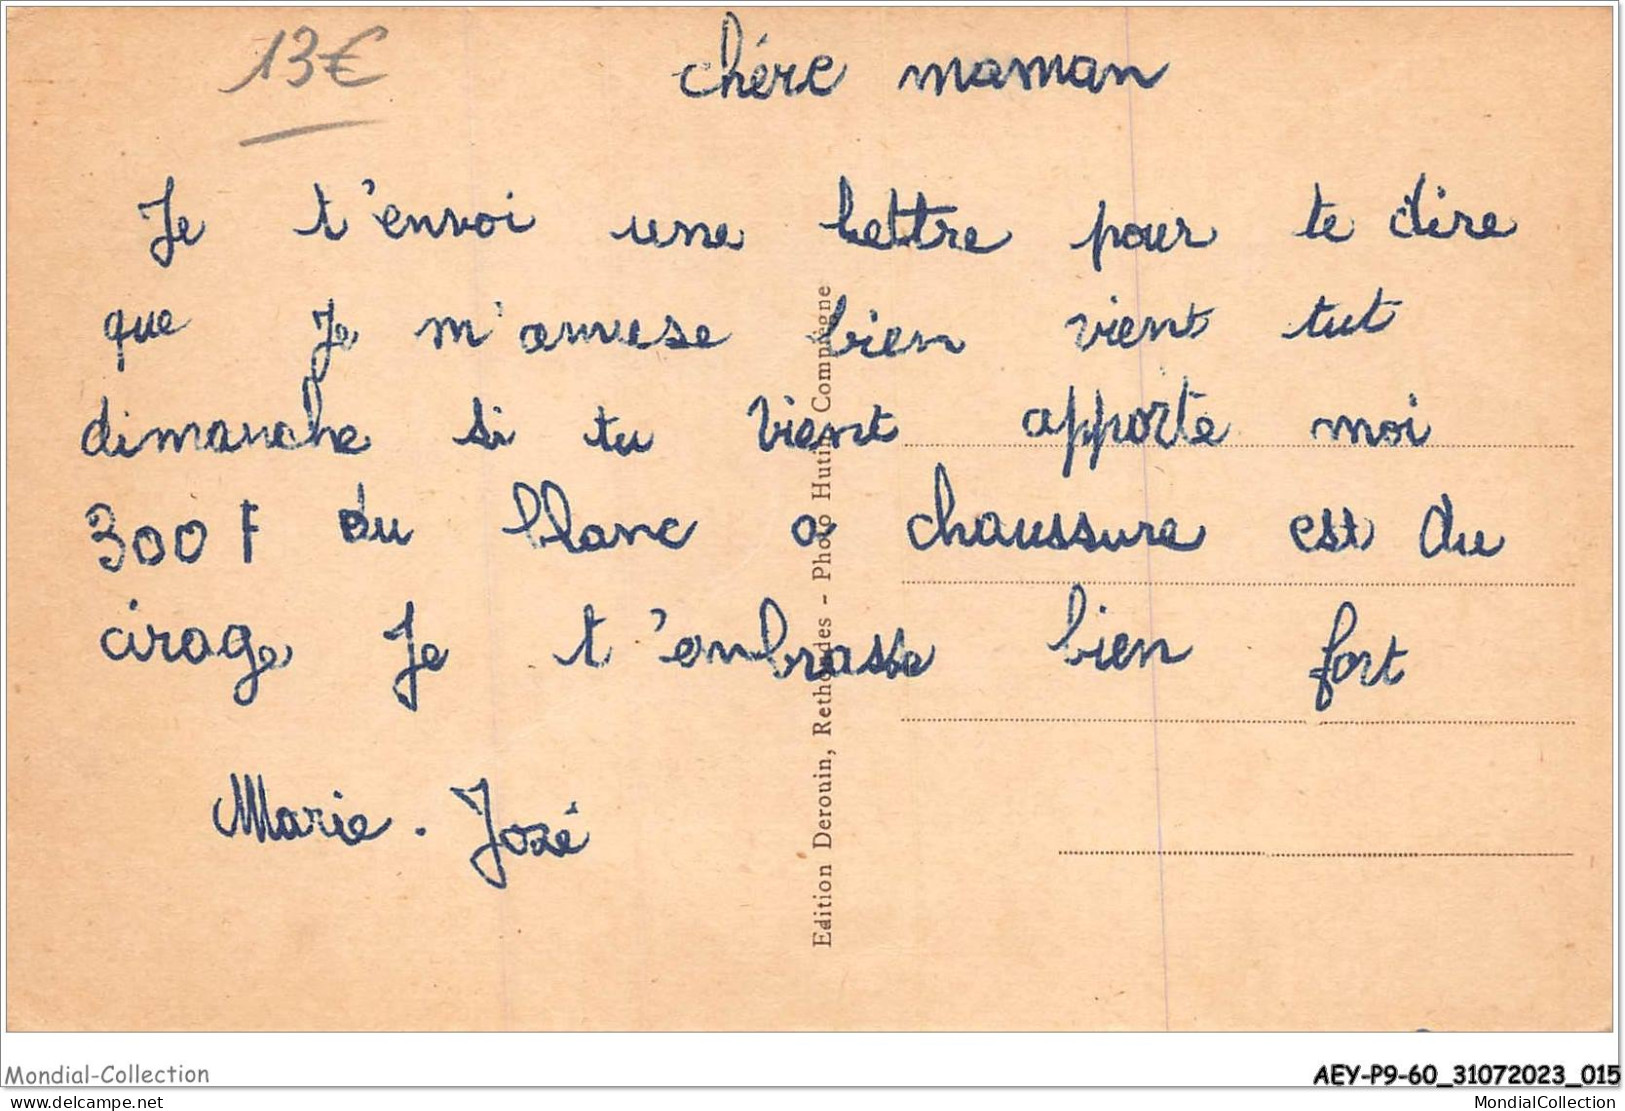 13€
chére maman
Je t'envoi une lettre pour te dire
que Je m'amuse bien vient tut
dimanche si tu vient apporte moi
300 F du blanc a chaussure est du
cirage Je t'embrasse bien fort
Marie-Jozé
Edition Derouin, Rethondes - Photo Hutin, Compiègne
Mondial-Collection
AEY-P9-60_31072023_015
www.delcampe.net
MondialCollection